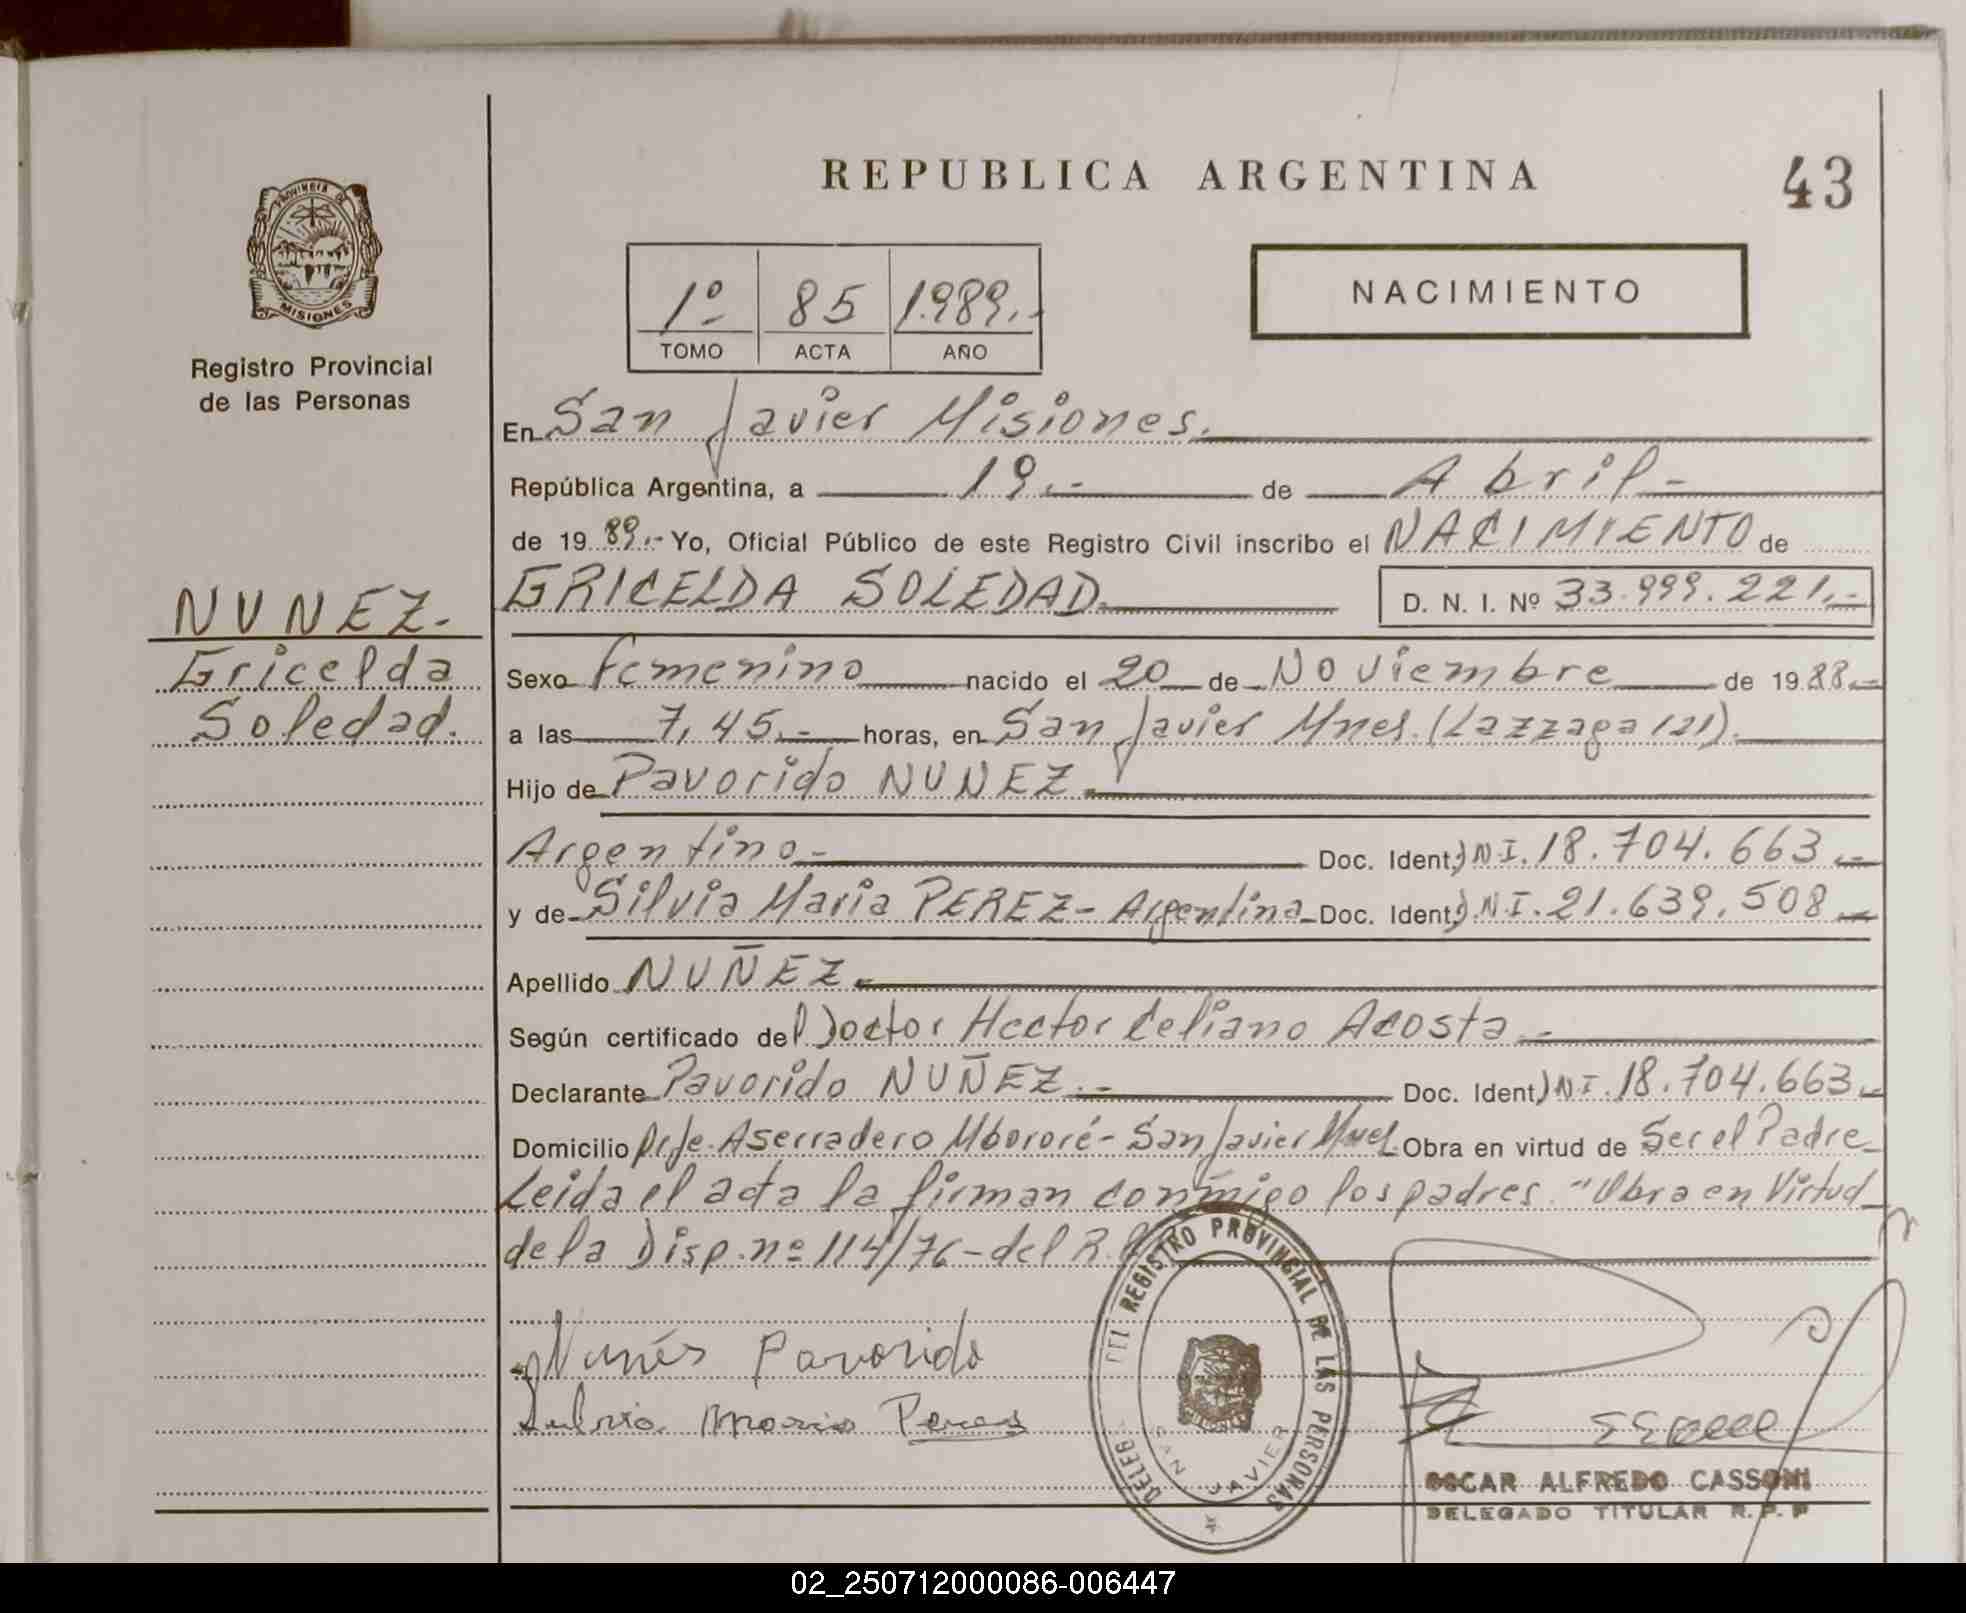 REPUBLICA ARGENTINA
43
PROVINCIA DE
MISIONES
Registro Provincial
de las Personas
1º 85 1.989.-
TOMO ACTA AÑO
NACIMIENTO
En San Javier Misiones.
República Argentina, a 19.- de Abril-
de 19 89.- Yo, Oficial Público de este Registro Civil inscribo el NACIMIENTO de
GRICELDA SOLEDAD. D. N. I. Nº 33.999.221.-
NUNEZ.
Gricelda
Soledad.
Sexo femenino nacido el 20 de Noviembre de 19 88.-
a las 7,45.- horas, en San Javier Mnes. (Lazzaga 121).
Hijo de Pavorido NUNEZ
Argentino- Doc. Ident. DNI. 18.704.663.-
y de Silvia Maria PEREZ- Argentina- Doc. Ident. D.N.I. 21.639.508
Apellido NUÑEZ.
Según certificado del Doctor Hector Celiano Acosta.-
Declarante Pavorido NUÑEZ.- Doc. Ident. DNI. 18.704.663.-
Domicilio Aserradero Mbororé- San Javier Mnes. Obra en virtud de Ser el Padre
Leida el acta la firman conmigo los padres. "Obra en Virtud
de la Disp. nº 114/76- del R.
Nunés Pavorido
Silvia Maria Peres
DELEG DEL REGISTRO PROVINCIAL DE LAS PERSONAS
SAN JAVIER
OSCAR ALFREDO CASSONI
DELEGADO TITULAR R.P.P
02_250712000086-006447